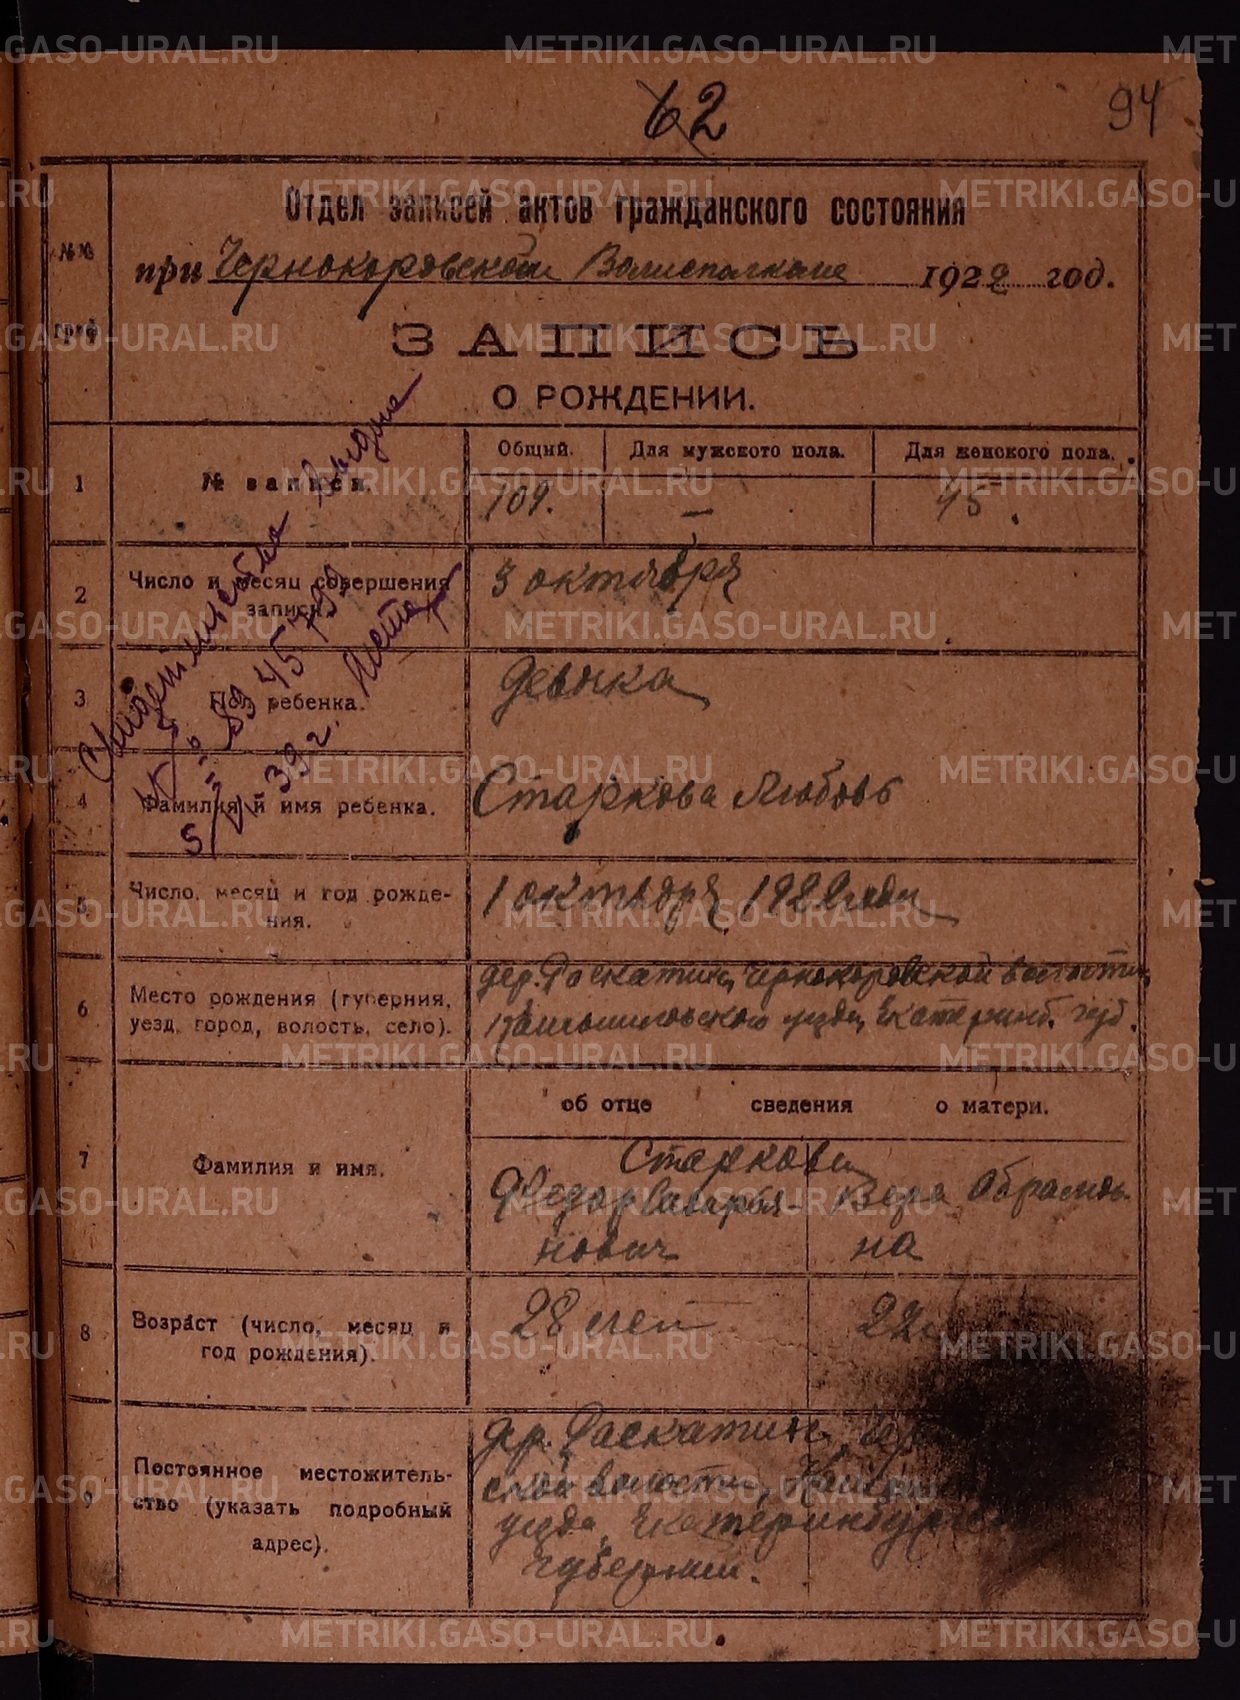 62
94
№№
граф
Отдел записей актов гражданского состояния
при Чернокоровском Волисполкоме 1922 год.
ЗАПИСЬ
О РОЖДЕНИИ.
1
№ записи.
Общий.
Для мужского пола.
Для женского пола.
109.
—
45.
2
Число и месяц совершения
записи.
3 октября
3
Пол ребенка.
девочка
4
Фамилия и имя ребенка.
Старкова Любовь
Свидетельство выдано
5
Число, месяц и год рождения.
1 октября 1922 года
6
Место рождения (губерния,
уезд, город, волость, село).
дер. Раскатиха, Чернокоровской волости
Камышловского уезда, Екатеринб. губ.
об отце
сведения
о матери.
7
Фамилия и имя.
Старковы
Федор Саварья-
нович
Вера Абрамов-
на
8
Возраст (число, месяц и
год рождения).
28 лет
22
9
Постоянное местожитель-
ство (указать подробный
адрес).
дер. Раскатиха,
ской волости,
уезда,
губернии.
METRIKI.GASO-URAL.RU